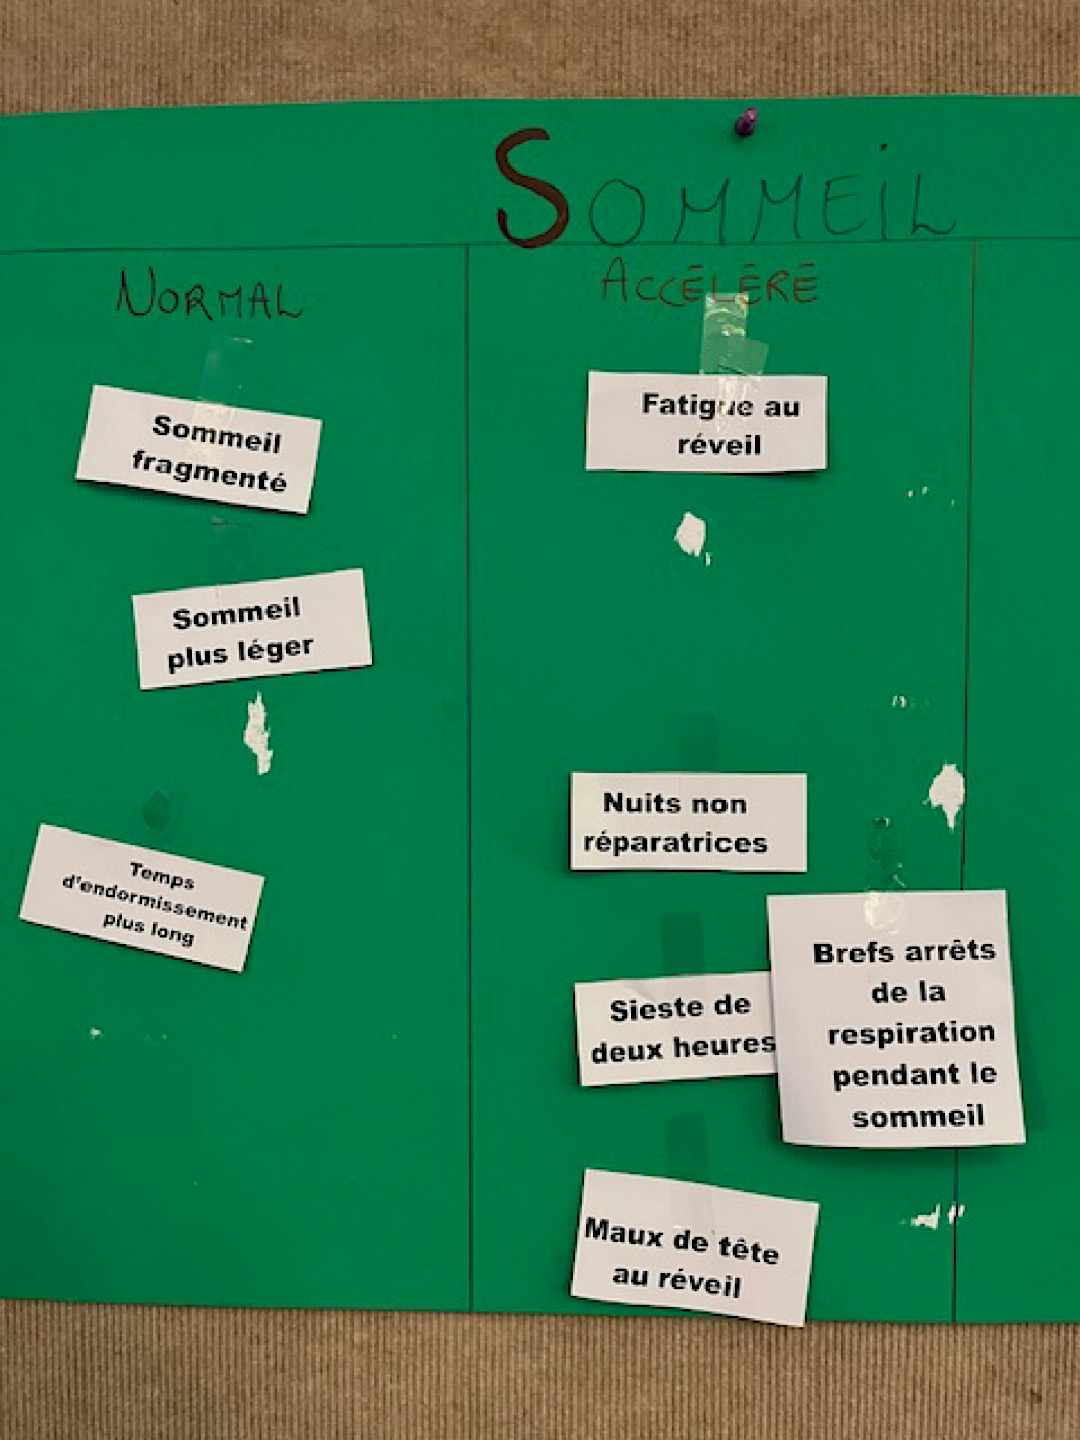 SOMMEIL
NORMAL
Sommeil
fragmenté
Sommeil
plus léger
Temps
d'endormissement
plus long
ACCÉLÉRÉ
Fatigue au
réveil
Nuits non
réparatrices
Sieste de
deux heures
Brefs arrêts
de la
respiration
pendant le
sommeil
Maux de tête
au réveil